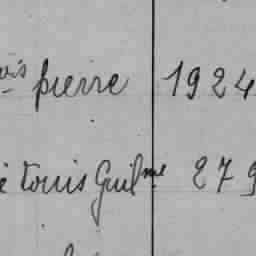 ois pierre 1924
é Louis Guilme 279